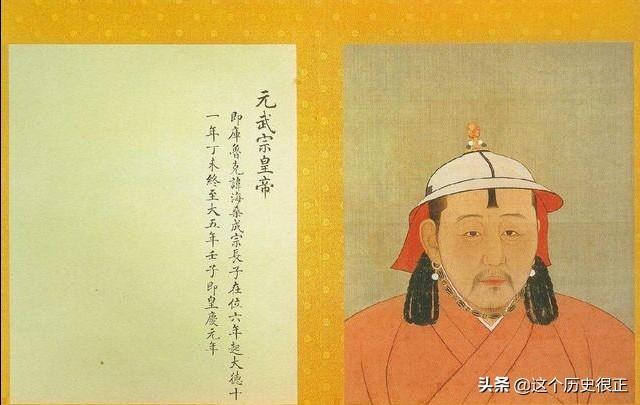 元武宗皇帝
即庫魯克諱海桑成宗長子在位六年起大德十
一年丁未終至大五年壬子即皇慶元年
头条 @这个历史很正